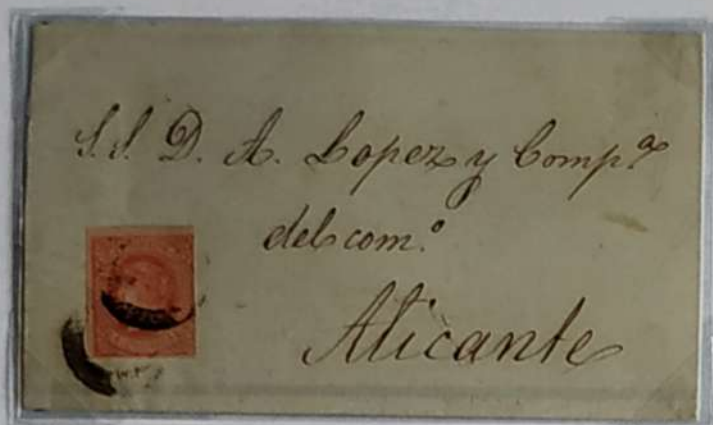 S.S. D. A. Lopez y Comp.ª
del com.º
Alicante